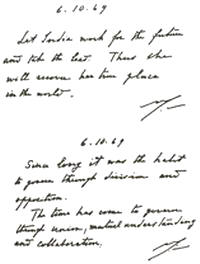 6.10.69
Let India work for the future
and take the lead. Thus she
will recover her true place
in the world.
6.10.69
Since long it was the habit
to govern through division and
opposition.
The time has come to govern
through union, mutual understanding
and collaboration.